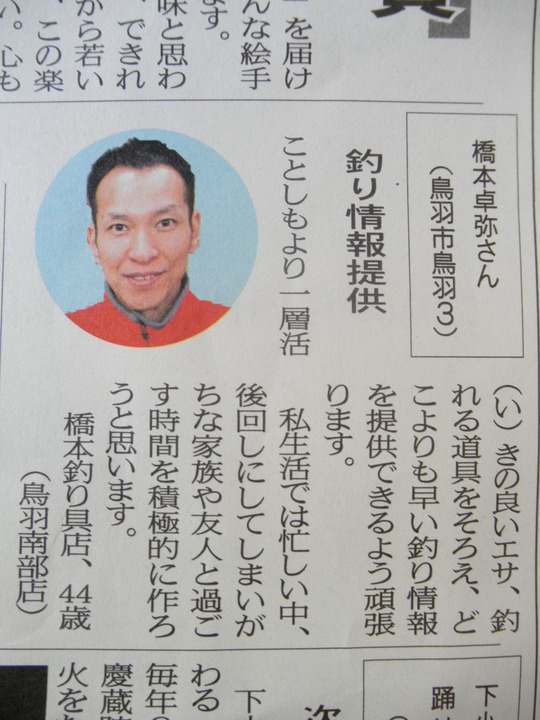 を届け
んな絵手
ます。
味と思わ
、できれ
から若い
、この楽
い。心も
橋本卓弥さん
（鳥羽市鳥羽３）
釣り情報提供
ことしもより一層活
（い）きの良いエサ、釣
れる道具をそろえ、ど
こよりも早い釣り情報
を提供できるよう頑張
ります。
私生活では忙しい中、
後回しにしてしまいが
ちな家族や友人と過ご
す時間を積極的に作ろ
うと思います。
橋本釣り具店、44歳
（鳥羽南部店）
踊
次
下
わる
毎年
慶蔵
火を